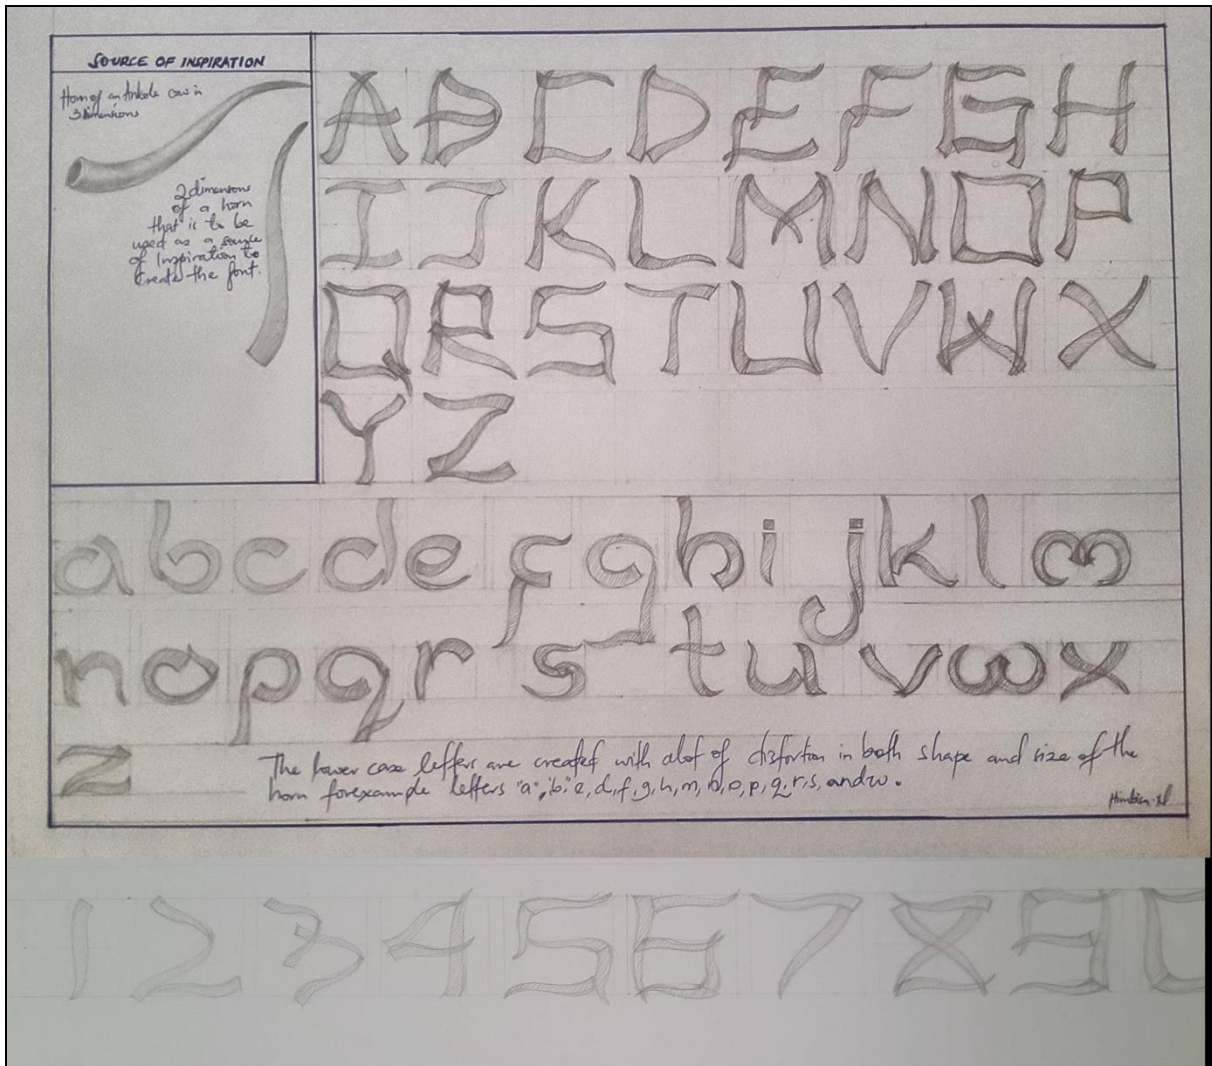 SOURCE OF INSPIRATION
Horn of an Ankole cow in
3 dimensions
2 dimensions
of a horn
that is to be
used as a source
of Inspiration to
Create the font.
A B C D E F G H
I J K L M N O P
Q R S T U V W X
Y Z
a b c d e f g h i j k l m
n o p q r s t u v w x
z
The lower case letters are created with alot of distortion in both shape and size of the
horn forexample letters "a", "b", e, d, f, g, h, m, n, o, p, q, r, s, and w.
1 2 3 4 5 6 7 8 9 0